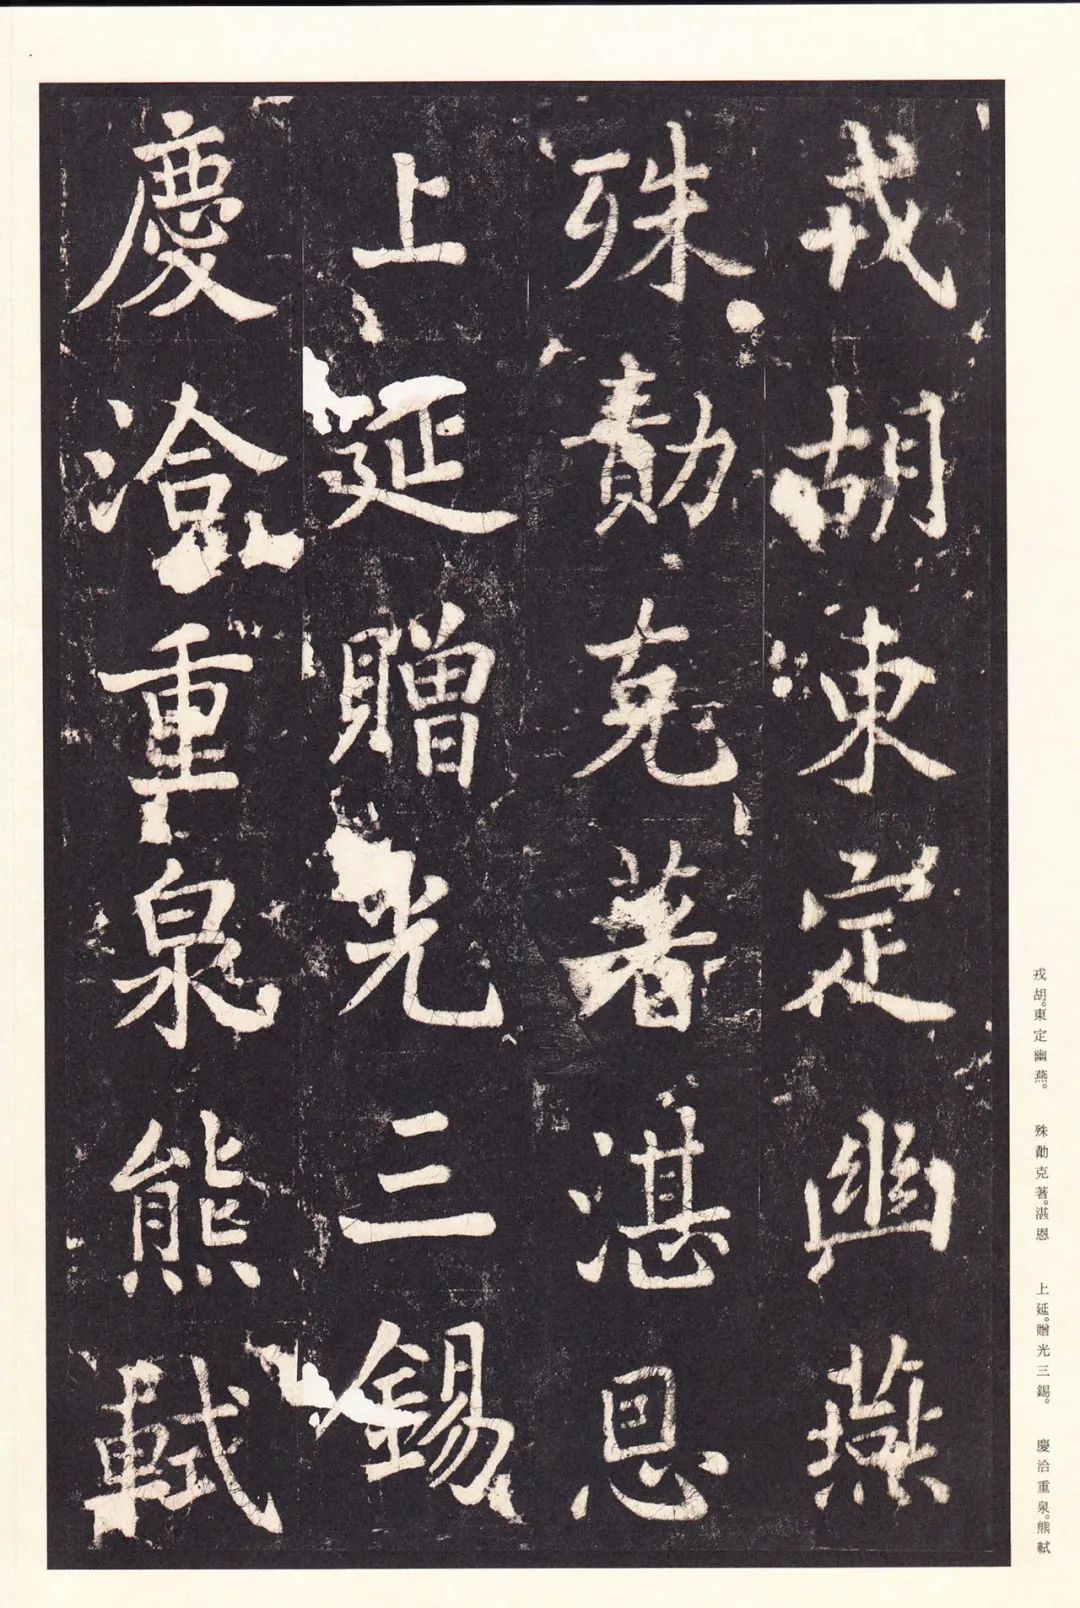 戎胡東定幽燕
殊勣克著湛恩
上延贈光三錫
慶洽重泉熊軾
戎胡。東定幽燕。　殊勣克著。湛恩　上延。贈光三錫。　慶洽重泉。熊軾